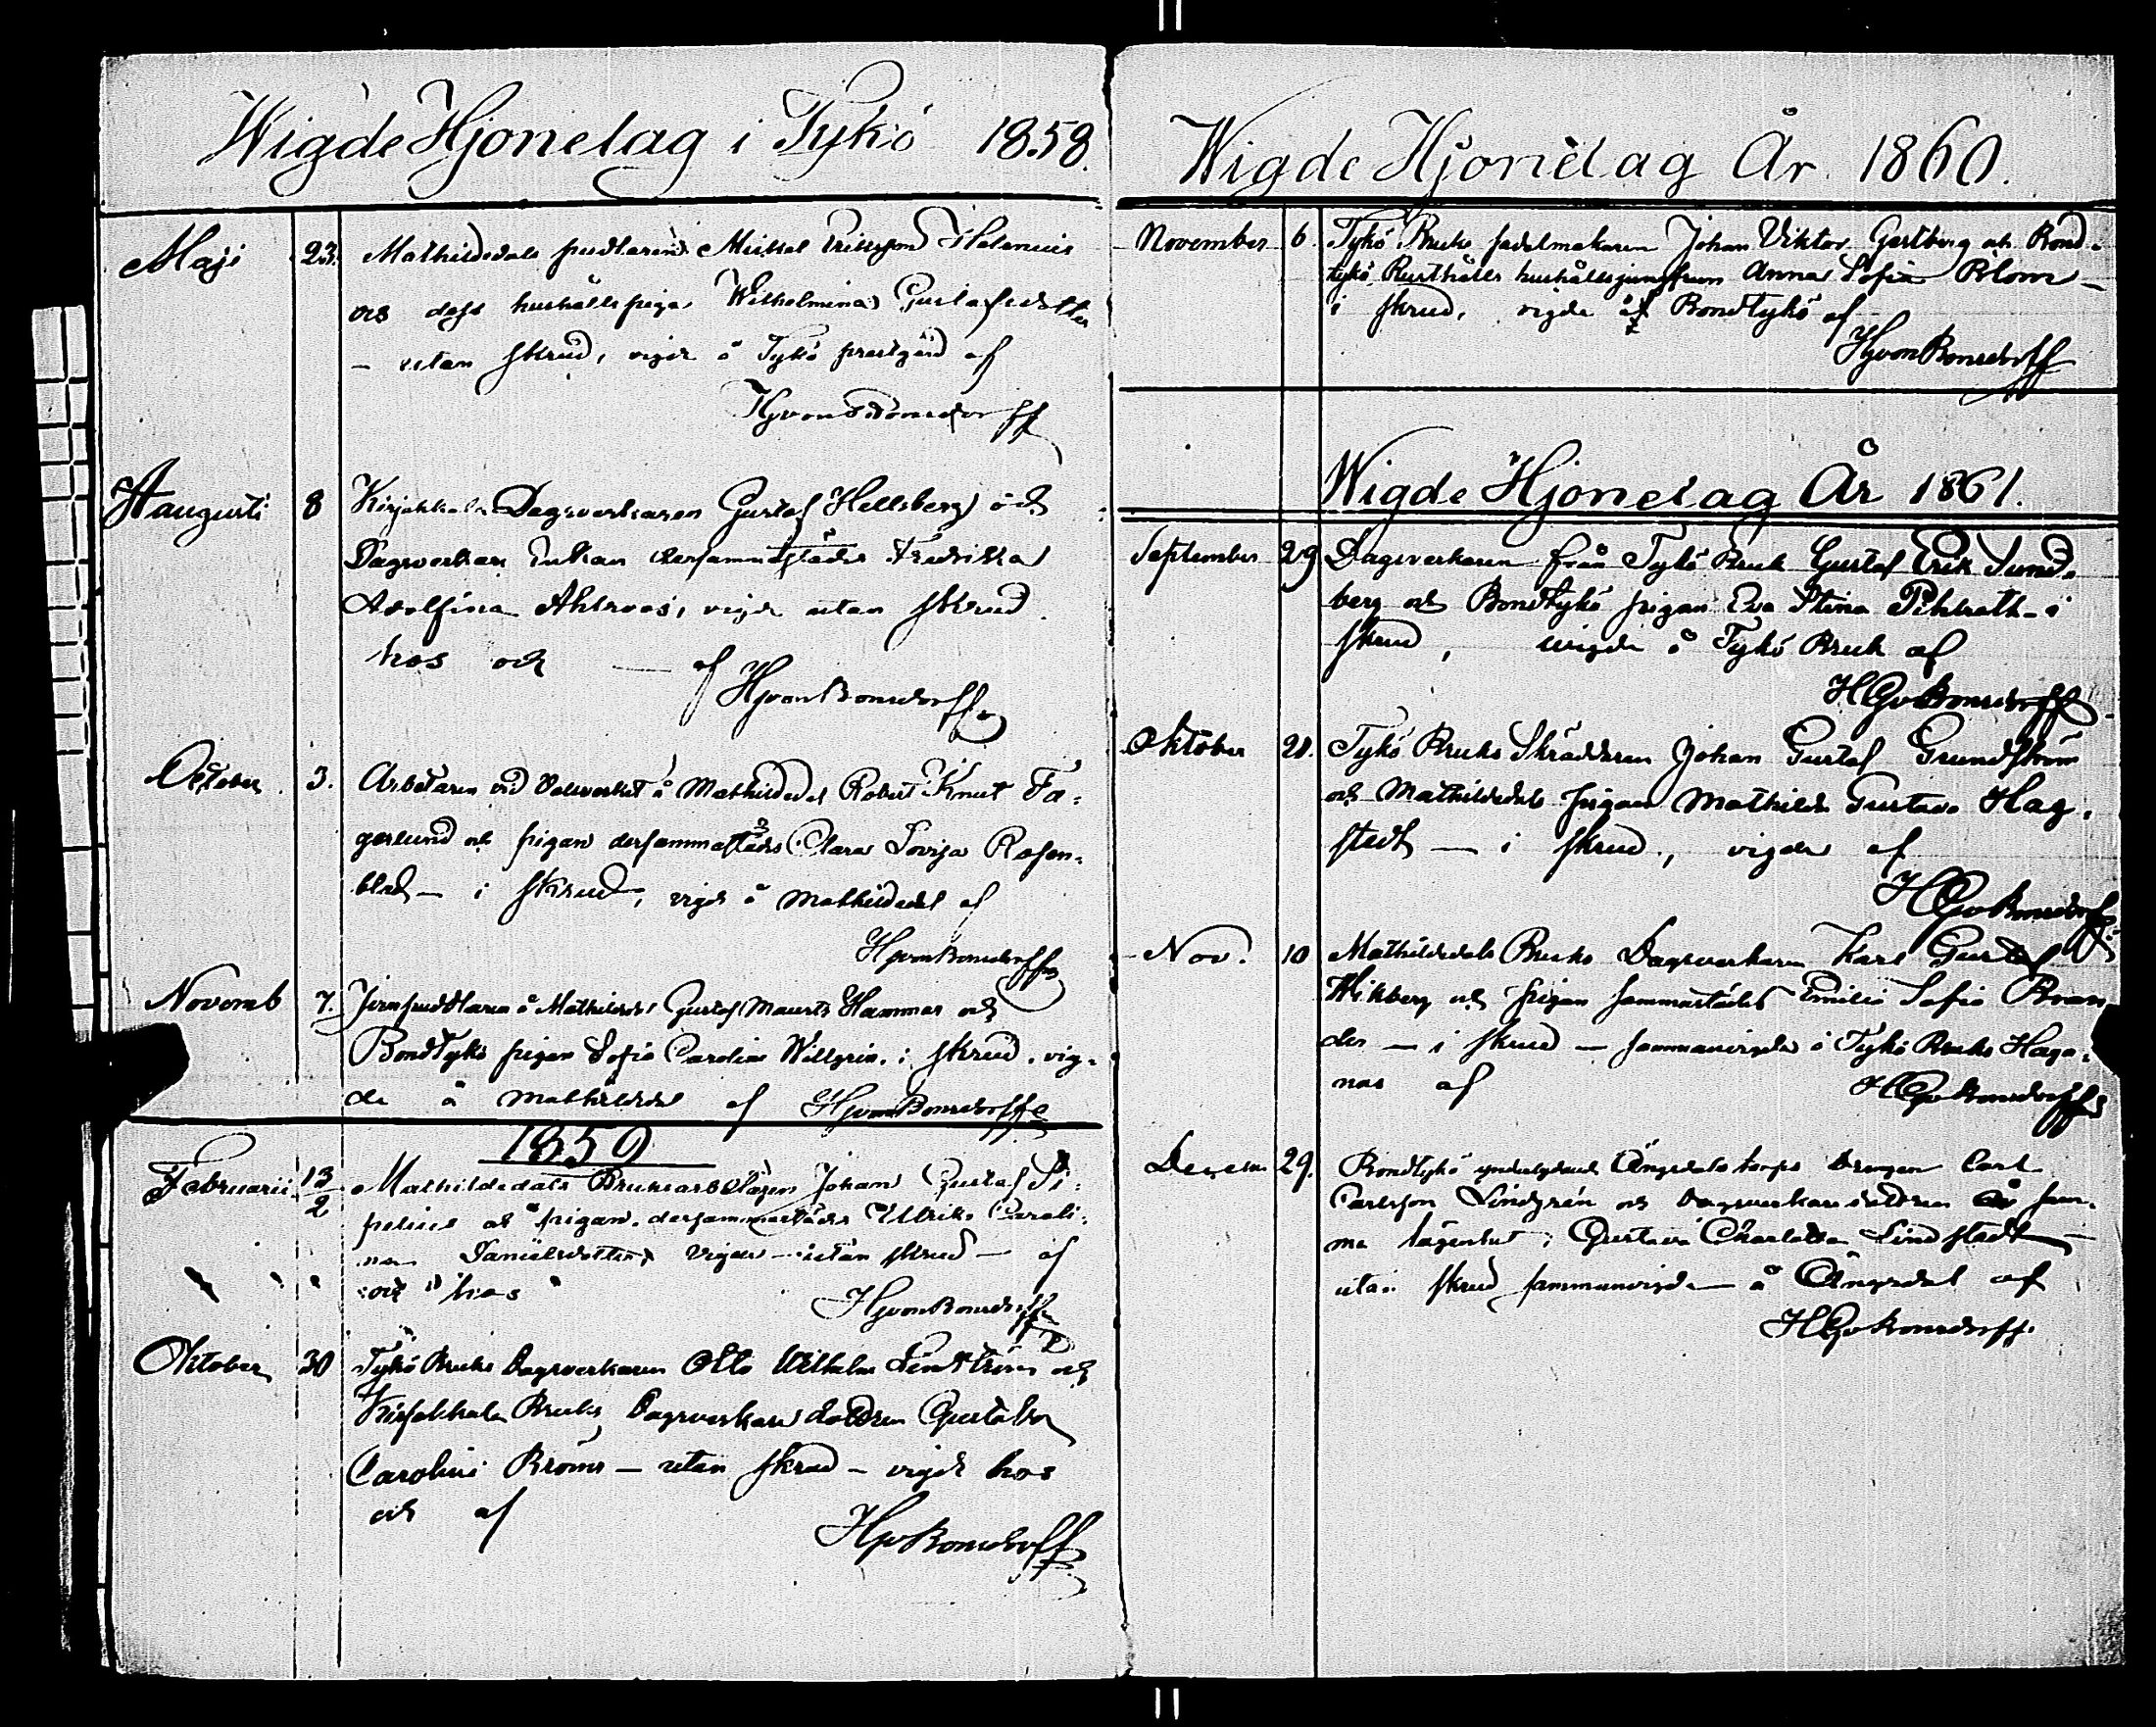 Wigde Hjonelag i Tykö 1858.
Maji 23. Mathildedals pudlaren Mickel Eriksson Helenius
och dess hushålls piga Wilhelmina Gustafsdotter
– utan skrud, vigde å Tykö prestgård af
HGvonBonsdorff
Augusti 8 Kirjakkala Dagsverkaren Gustaf Hellsberg och
Dagsverkare Enkan dersammastädes Fredrika
Adolfina Ahlroos, vigde utan skrud
hos och — af HGvonBonsdorff
October 3. Arbetaren vid Valsverket å Mathildedal Robert Knut Fa-
gerlund och pigan dersammastädes Clara Lovisa Rosen-
blad – i skrud, vigde å Mathildedal af
HGvonBonsdorff
Novemb 7. Jernpudlaren å Mathildedal Gustaf Maurits Hammar och
Bondtykö pigan Sofia Carolina Willgrén. i skrud. vig-
de å Mathildedal af HGvonBonsdorff
1859
Februarii 13/2 Mathildedals Bruksarbetaren Johan Gustaf Si-
pelius och pigan dersammastädes Ulrika Caroli-
na Danielsdotter, vigde – utan skrud – af
och hos HGvonBonsdorff
Oktober 30 Tykö Bruks Dagsverkaren Otto Wilhelm Lindström och
Kirjakkala Bruks Dagsverkare dottren Gustava
Carolina Bröms – utan skrud – vigde hos
och af HGvBonsdorff
Wigde Hjonelag År 1860.
November 6. Tykö Bruks sadelmakaren Johan Viktor Gestberg och Bond-
tykö Rusthålls hushållsjungfrun Anna Sofia Blom –
i skrud, vigde å Bondtykö af
HGvonBonsdorff
Wigde Hjonelag År 1861.
September 29 Dagsverkaren från Tykö Bruk Gustaf Erik Sund-
berg och Bondtykö pigan Eva Stina – i
skrud, vigde å Tykö Bruk af
HGvBonsdorff
Oktober 20. Tykö Bruks Skräddaren Johan Gustaf Grundström
och Mathildedals pigan Mathilda Gustava Hag-
stedt — i skrud, vigde af
HGvBonsdorff
Nov. 10 Mathildedals Bruks Dagsverkaren Karl Gustaf
Wikberg och pigan sammastädes Emilia Sofia Bran
der — i skrud — sammanvigde i Tykö Bruks Haga-
nas af HGvBonsdorff
Decem 29. Bondtykö underlydande Ängsdals torps drengen Carl
Carlsson Lindgrén och Dagsverkare dottren å sam-
ma lägenhet, Gustava Charlotta Lindstedt –
utan skrud sammanvigde å Ängsdal af
HGvBonsdorff.